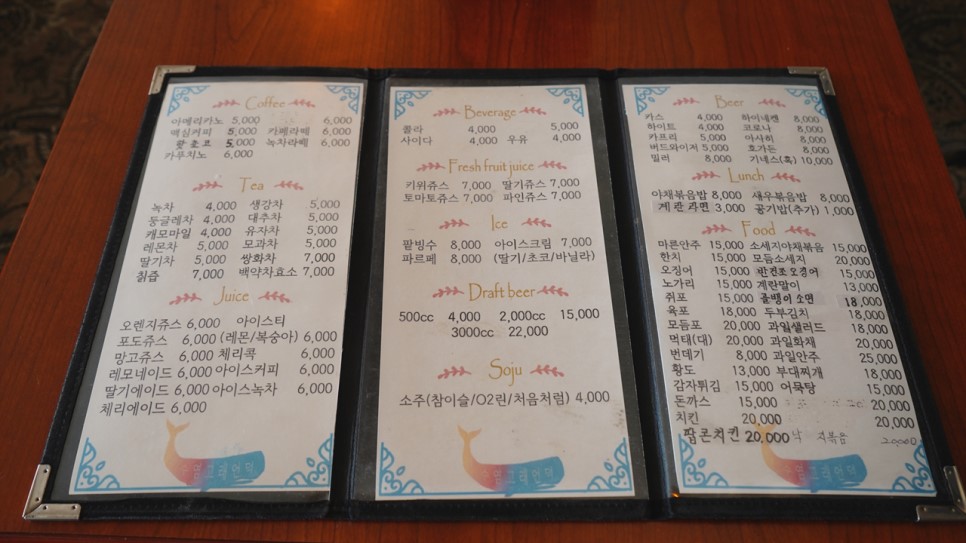 Coffee
아메리카노 5,000 6,000
맥심커피 5,000 카페라떼 6,000
5,000 녹차라떼 6,000
카푸치노 6,000
Tea
녹차 4,000 생강차 5,000
둥글레차 4,000 대추차 5,000
캐모마일 4,000 유자차 5,000
레몬차 5,000 모과차 5,000
딸기차 5,000 쌍화차 7,000
칡즙 7,000 백약차효소 7,000
Juice
오렌지쥬스 6,000 아이스티
포도쥬스 6,000 (레몬/복숭아) 6,000
망고쥬스 6,000 체리콕 6,000
레모네이드 6,000 아이스커피 6,000
딸기에이드 6,000 아이스녹차 6,000
체리에이드 6,000
Beverage
콜라 4,000 5,000
사이다 4,000 우유 4,000
Fresh fruit juice
키위쥬스 7,000 딸기쥬스 7,000
토마토쥬스 7,000 파인쥬스 7,000
Ice
팥빙수 8,000 아이스크림 7,000
파르페 8,000 (딸기/초코/바닐라)
Draft beer
500cc 4,000 2,000cc 15,000
3000cc 22,000
Soju
소주(참이슬/O2린/처음처럼) 4,000
Beer
카스 4,000 하이네켄 8,000
하이트 4,000 코로나 8,000
카프리 5,000 아사히 8,000
버드와이저 5,000 호가든 8,000
밀러 8,000 기네스(흑) 10,000
Lunch
야채볶음밥 8,000 새우볶음밥 8,000
계란라면 3,000 공기밥(추가) 1,000
Food
마른안주 15,000 소세지야채볶음 15,000
한치 15,000 모듬소세지 20,000
오징어 15,000 반건조오징어 15,000
노가리 15,000 계란말이 13,000
쥐포 15,000 골뱅이소면 18,000
육포 18,000 두부김치 18,000
모듬포 20,000 과일샐러드 18,000
먹태(대) 20,000 과일화채 20,000
번데기 8,000 과일안주 25,000
황도 13,000 부대찌개 18,000
감자튀김 15,000 어묵탕 15,000
돈까스 15,000 20,000
치킨 20,000 20,000
팝콘치킨 20,000